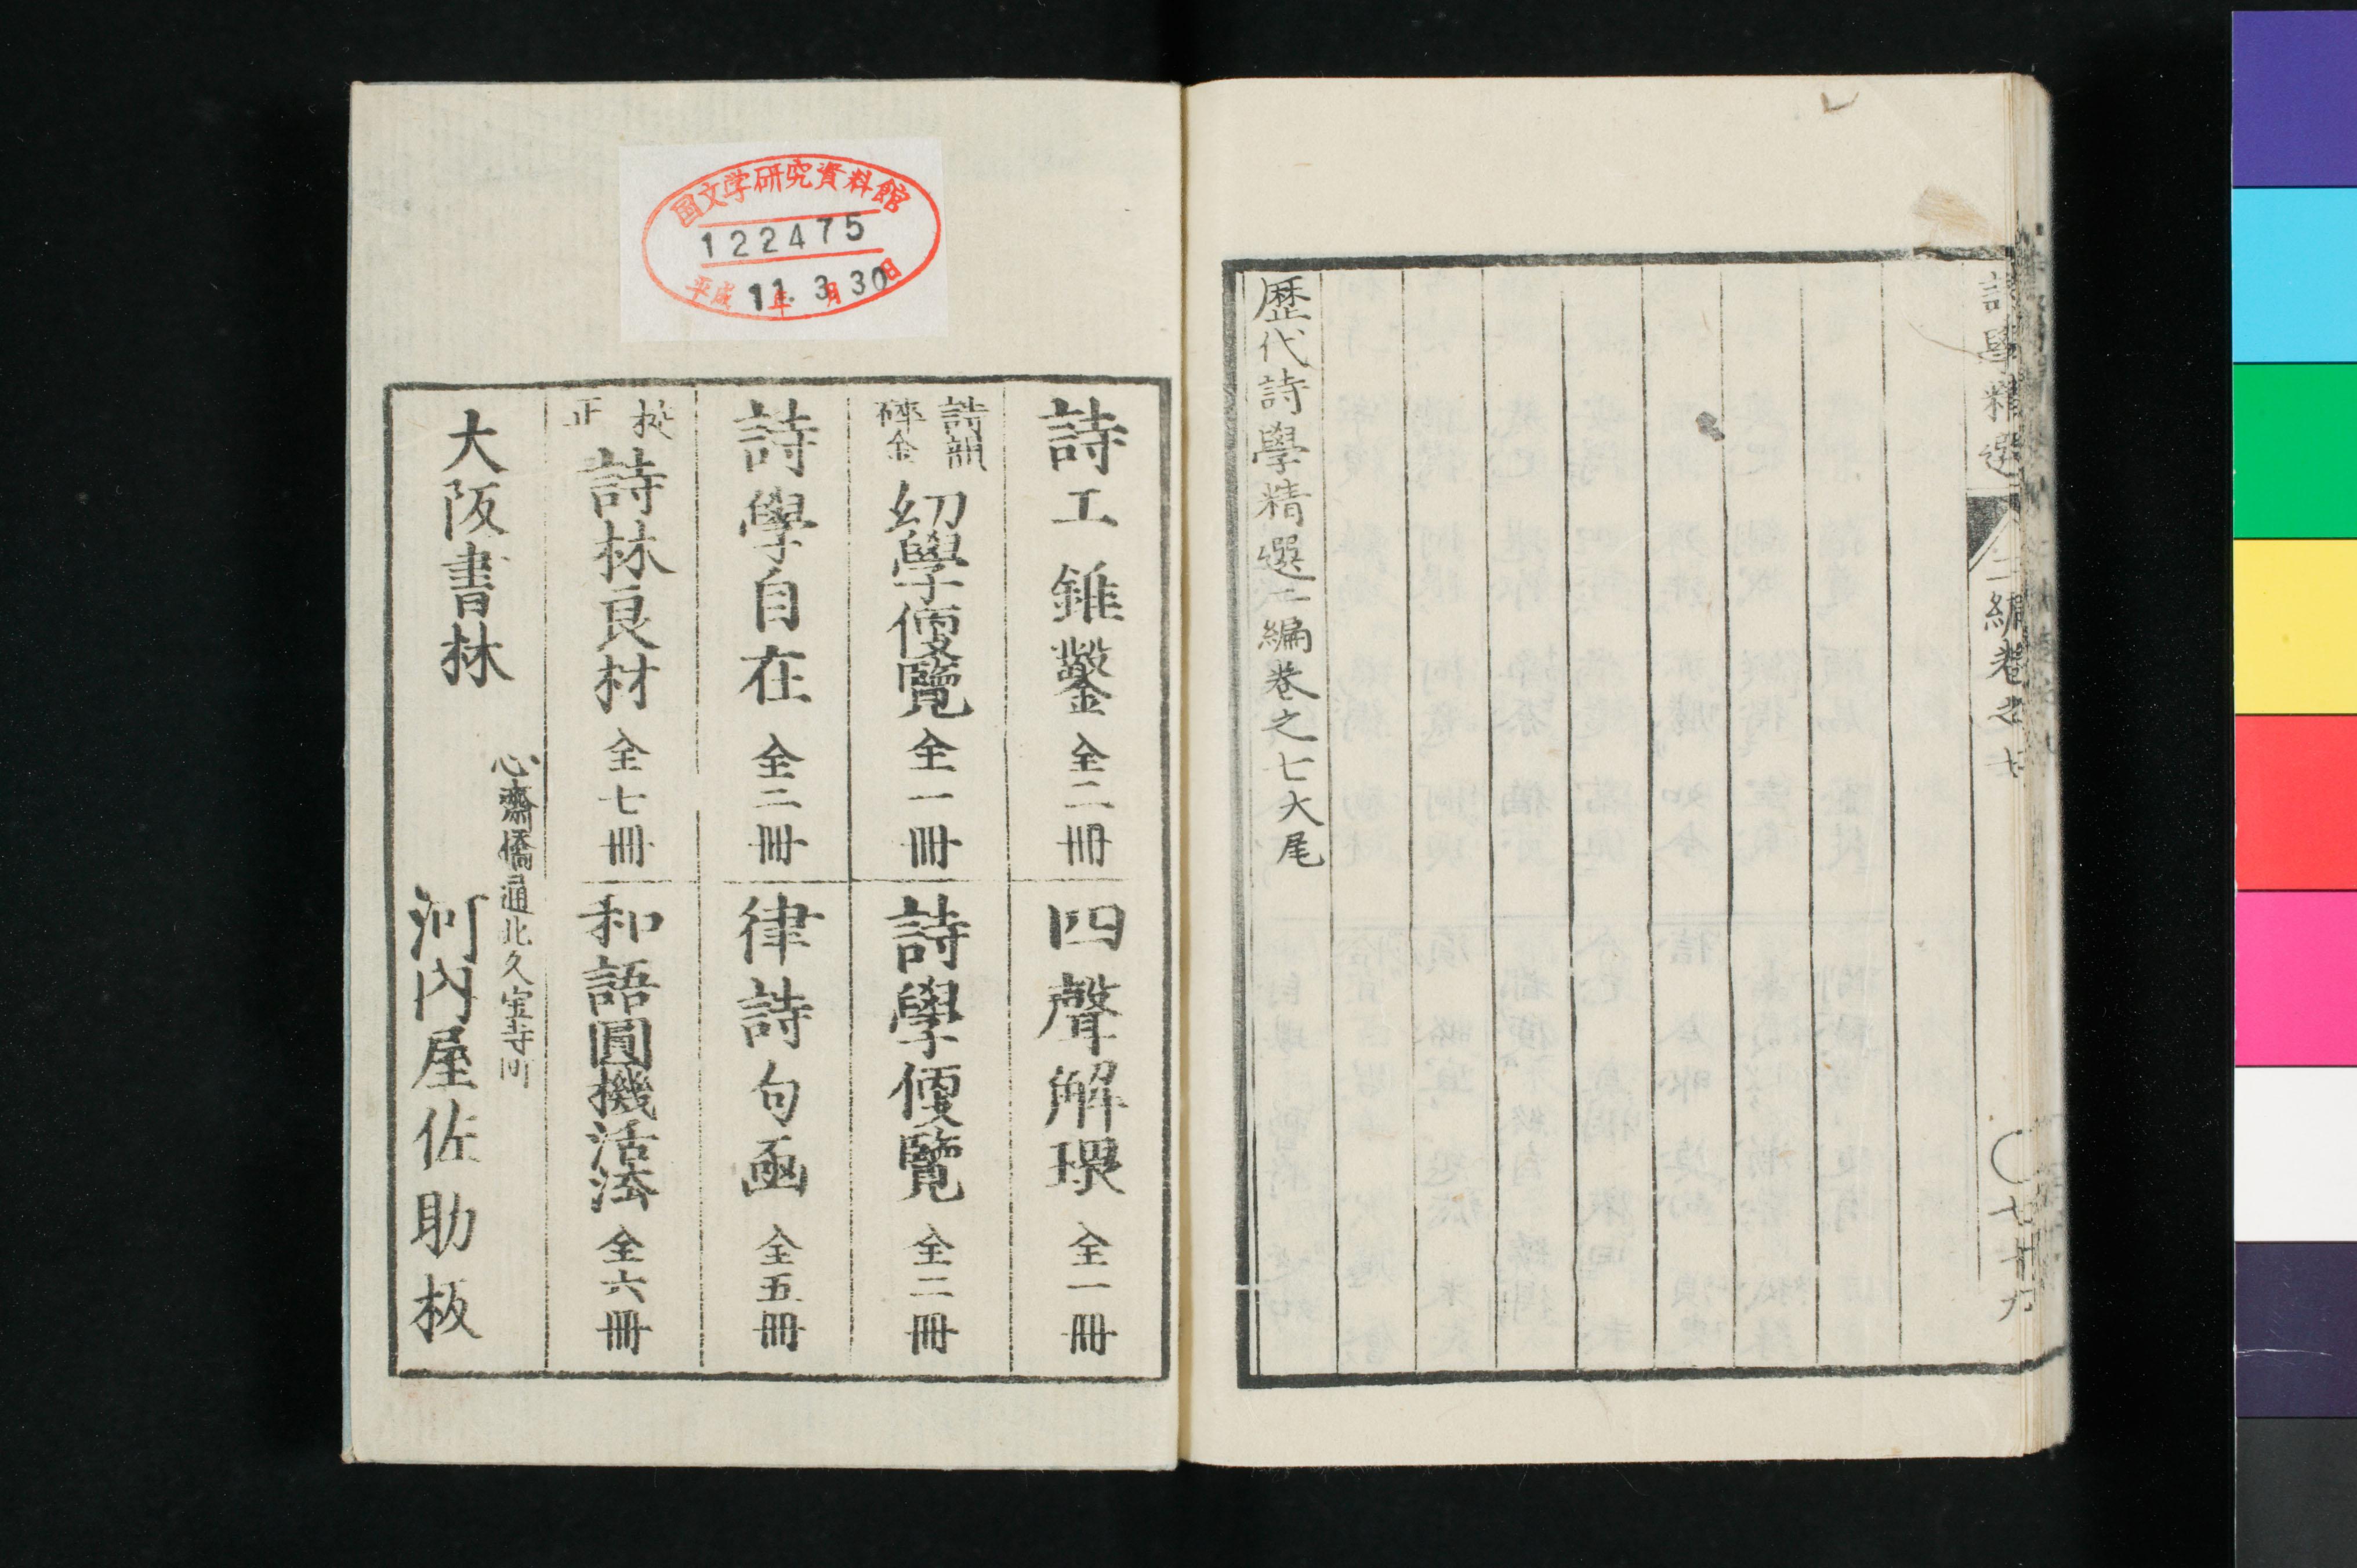 詩學精選二編卷之七
七十九
歴代詩學精選二編巻之七大尾
国文学研究資料館
122475
平成11年3月30日
詩工錐鑿 全二冊
四聲解環 全一冊
詩韻碎金 幼學便覽 全一冊
詩學便覽 全二冊
詩學自在 全二冊
律詩句函 全五冊
挍正 詩林良材 全七冊
和語圓機活法 全六冊
心齋橋通北久宝寺町
大阪書林 河内屋佐助板